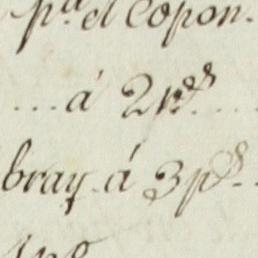 p.ª el Copon.
... á 2 r.s ...
bray á 3 p.s